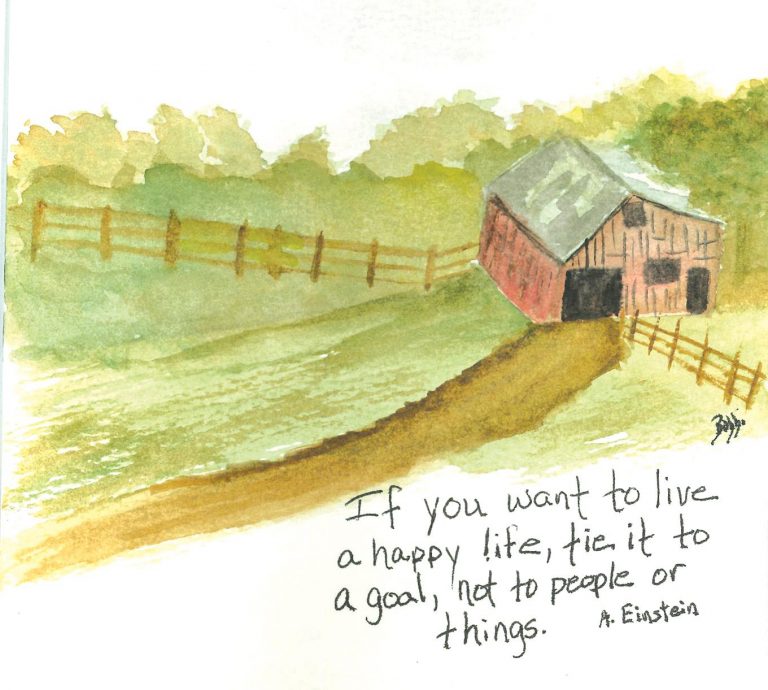 Bobbi
If you want to live
a happy life, tie it to
a goal, not to people or
things. A. Einstein